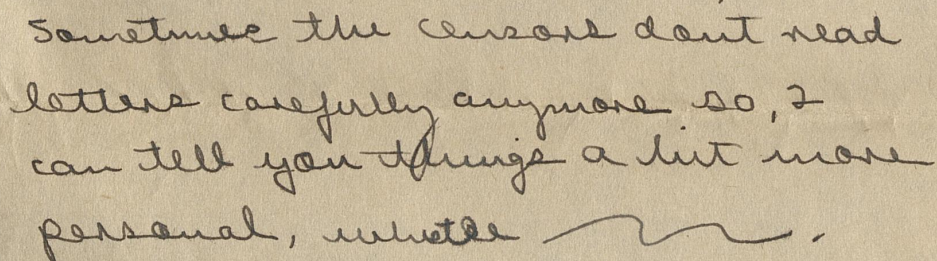 Sometimes the censors dont read
letters carefully anymore so, I
can tell you things a bit more
personal, whistle